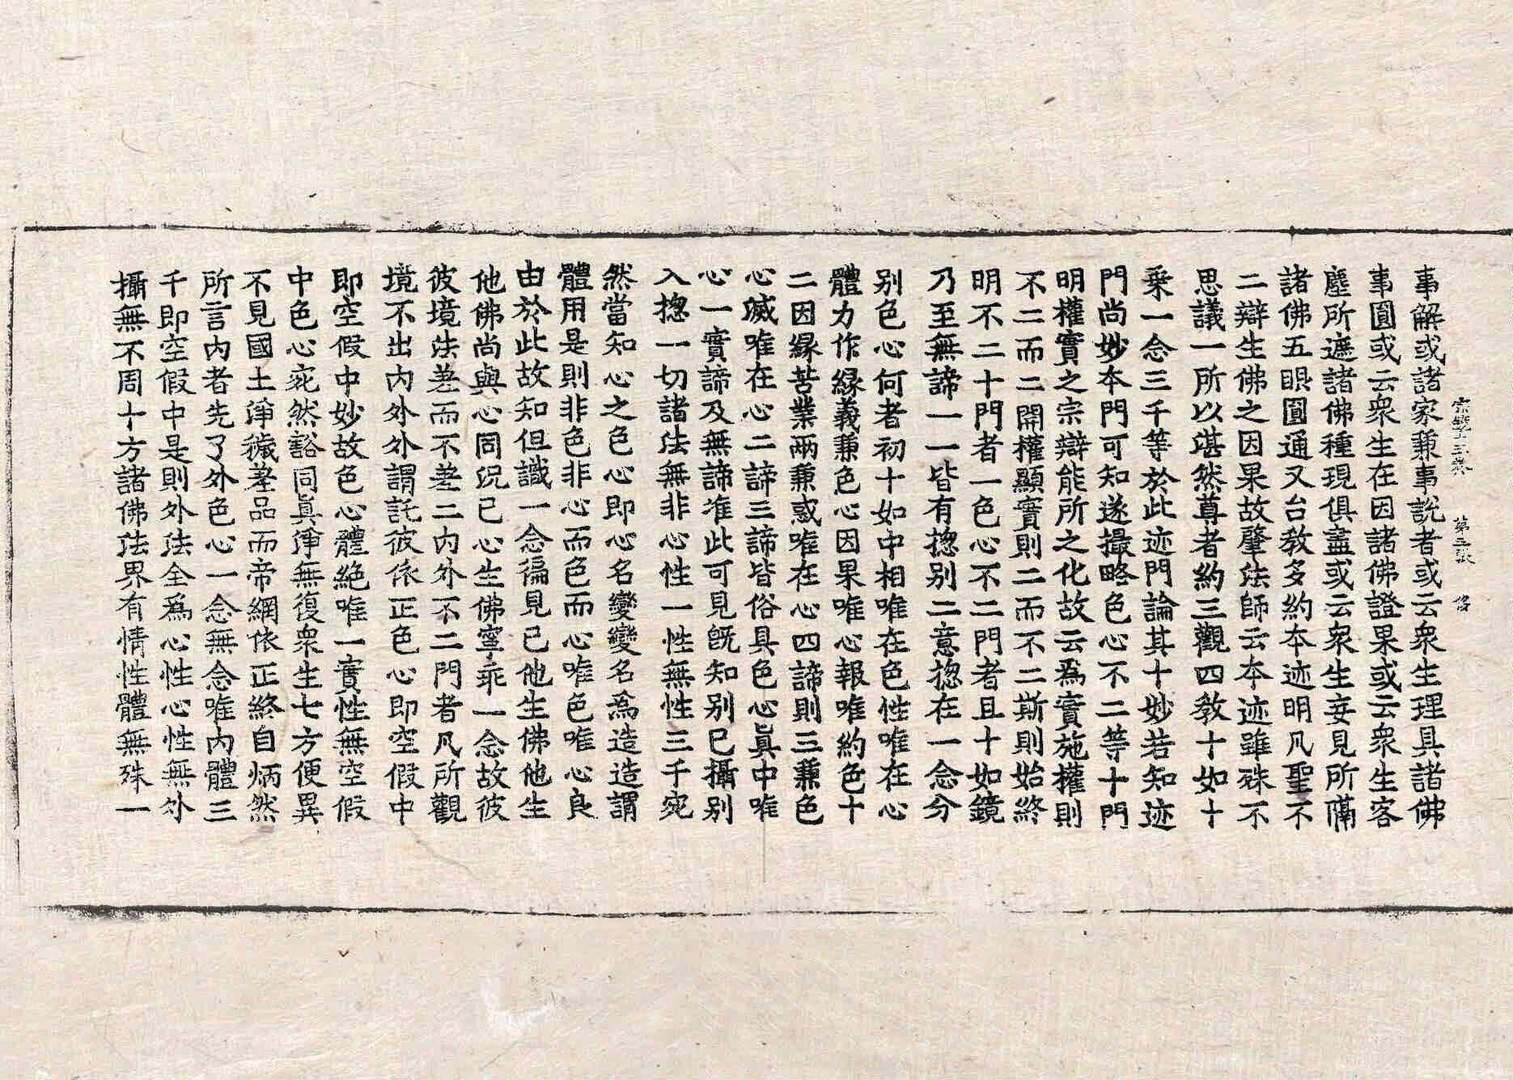 宗鏡三卷　第三張　俈
事解或諸家兼事說者或云衆生理具諸佛
事圓或云衆生在因諸佛證果或云衆生客
塵所遮諸佛種現俱盡或云衆生妄見所隔
諸佛五眼圓通又台教多約本迹明凡聖不
二辯生佛之因果故肇法師云本迹雖殊不
思議一所以湛然尊者約三觀四教十如十
乗一念三千等於此迹門論其十妙若知迹
門尚妙本門可知遂撮略色心不二等十門
明權實之宗辯能所之化故云爲實施權則
不二而二開權顯實則二而不二斯則始終
明不二十門者一色心不二門者且十如鏡
乃至無諦一一皆有揔别二意揔在一念分
别色心何者初十如中相唯在色性唯在心
體力作緣義兼色心因果唯心報唯約色十
二因緣苦業兩兼惑唯在心四諦則三兼色
心滅唯在心二諦三諦皆俗具色心眞中唯
心一實諦及無諦准此可見旣知别已攝别
入揔一切諸法無非心性一性無性三千宛
然當知心之色心即心名變變名爲造造謂
體用是則非色非心而色而心唯色唯心良
由於此故知但識一念徧見已他生佛他生
他佛尚與心同況已心生佛寧乖一念故彼
彼境法差而不差二内外不二門者凡所觀
境不出内外外謂託彼依正色心即空假中
即空假中妙故色心體絶唯一實性無空假
中色心宛然豁同眞淨無復衆生七方便異
不見國土淨穢差品而帝網依正終自炳然
所言内者先了外色心一念無念唯内體三
千即空假中是則外法全爲心性心性無外
攝無不周十方諸佛法界有情性體無殊一